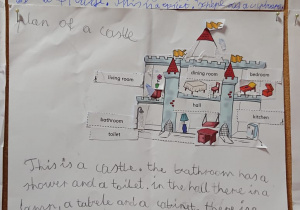 Plan of a castle
living room
dining room
bedroom
hall
bathroom
kitchen
toilet
This is a castle, the bathroom has a
shower and a toilet, in the hall there is a
lamp, a tabele and a cabinet, there is a